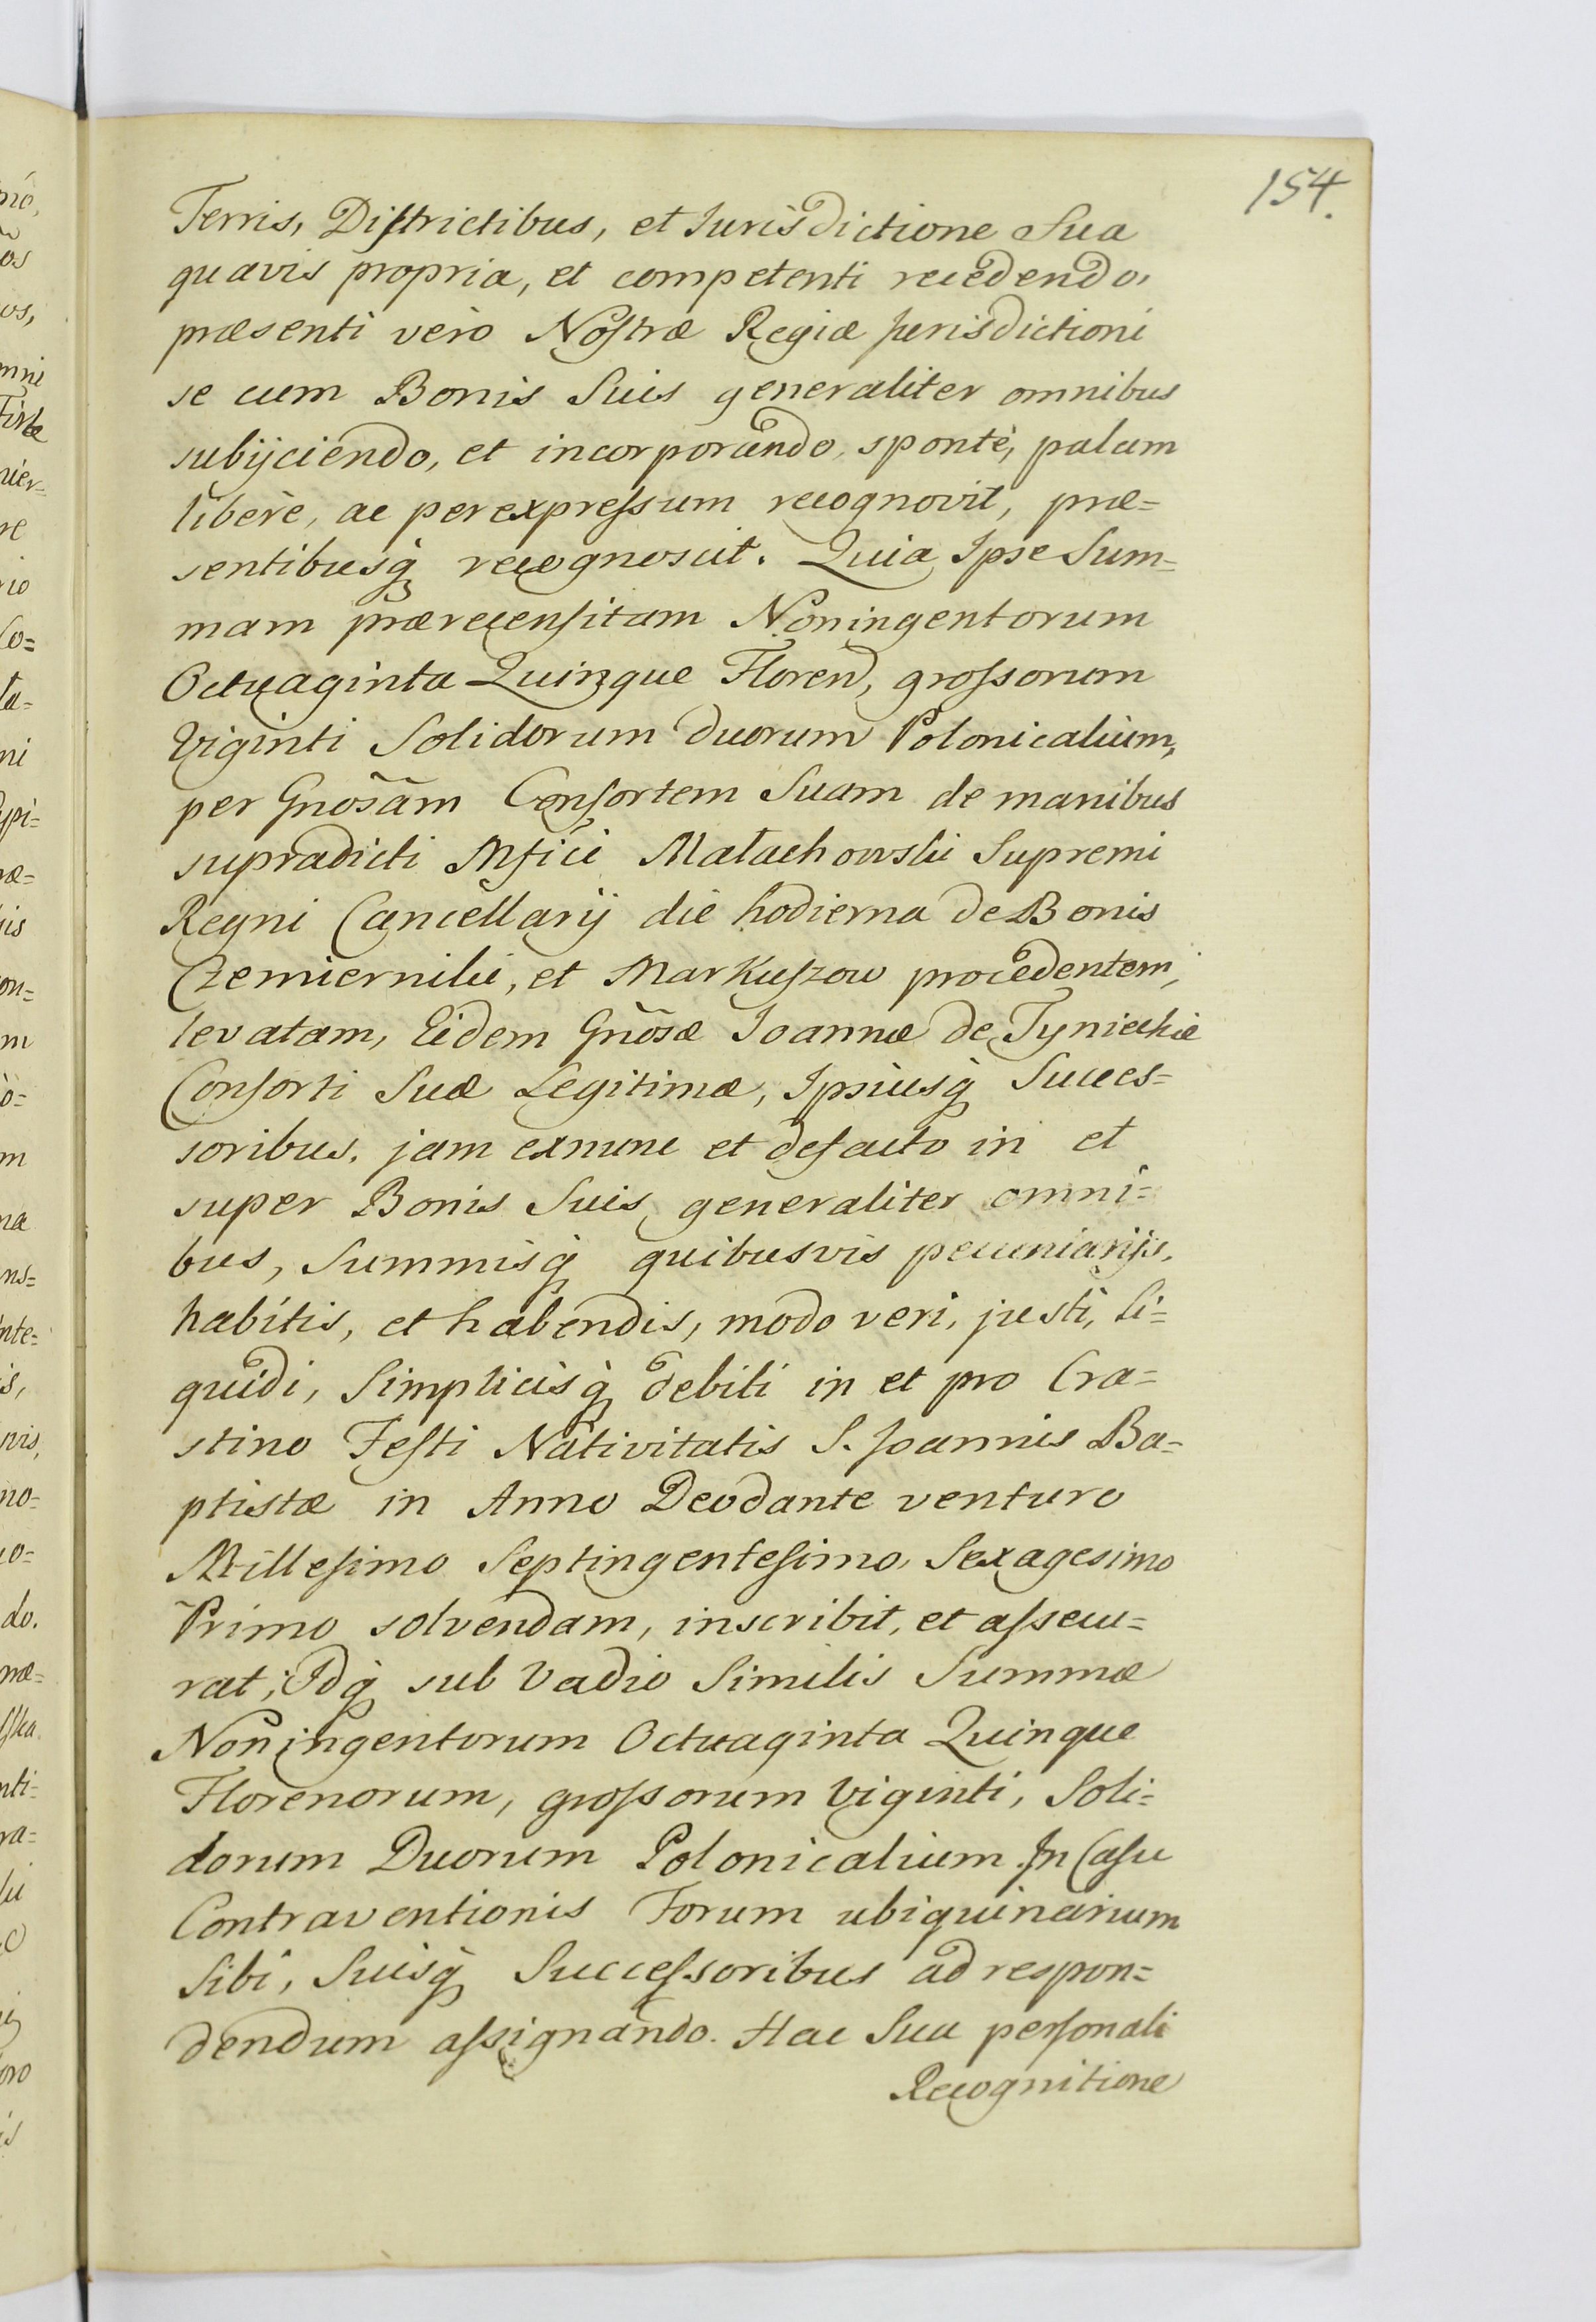 154.
Terris, Districtibus, et Jurisdictione Sua
quavis propria, et competenti recedendo,
præsenti verò Nostræ Regiæ Jurisdictioni
se cum Bonis Suis generaliter omnibus
subijciendo, et incorporando, spontè, palam
liberè, ac per expressum recognovit, præ=
sentibusq́; recognoscit. Quia Ipse Sum=
mam prærecensitam Noningentorum
Octuaginta Quinque Floren, grossorum
Viginti Solidorum duorum Polonicalium,
per Gnõsam Consortem Suam de manibus
supradicti Mfici Małachowski Supremi
Regni Cancellarij die hodierna de Bonis
Czemierniki, et Markuszow procedentem,
levatam, Eidem Gnõsæ Joannæ de Tynieckie
Consorti Suæ Legitimæ, Ipsiusq́; Succes=
soribus, jam exnunc et defacto in et
super Bonis Suis generaliter omni=
bus, Summisq́; quibusvis pecuniarijs,
habitis, et habendis, modo veri, justi, li=
quidi, Simplicisq́; debiti in et pro Cra=
stino Festi Nativitatis S. Joannis Ba=
ptistæ in Anno Deodante venturo
Millesimo Septingentesimo Sexagesimo
Primo solvendam, inscribit, et assecu=
rat; Idq́; sub Vadio Similis Summæ
Noningentorum Octuaginta Quinque
Florenorum, grossorum Viginti, Soli=
dorum Duorum Polonicalium. In Casu
Contraventionis Forum ubiquinarium
Sibi, Suisq́; Successoribus ad respon=
dendum assignando. Hac Sua personali
Recognitione